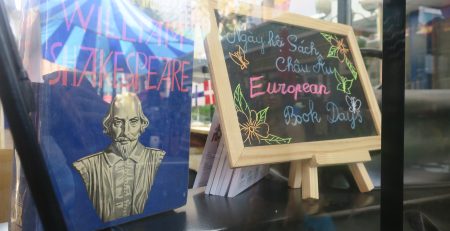 WILLIAM
SHAKESPEARE
Ngày Hội Sách
Châu Âu
European
Book Days